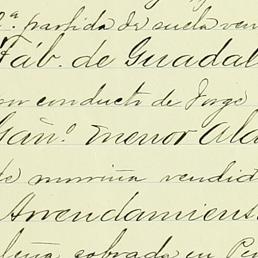 1.ª partida de suela ven
Fáb. de Guadal
por conducto de Jorge
Gan.º menor Ala
de morriña vendid
Arrendamient
leña cobrada en Pe